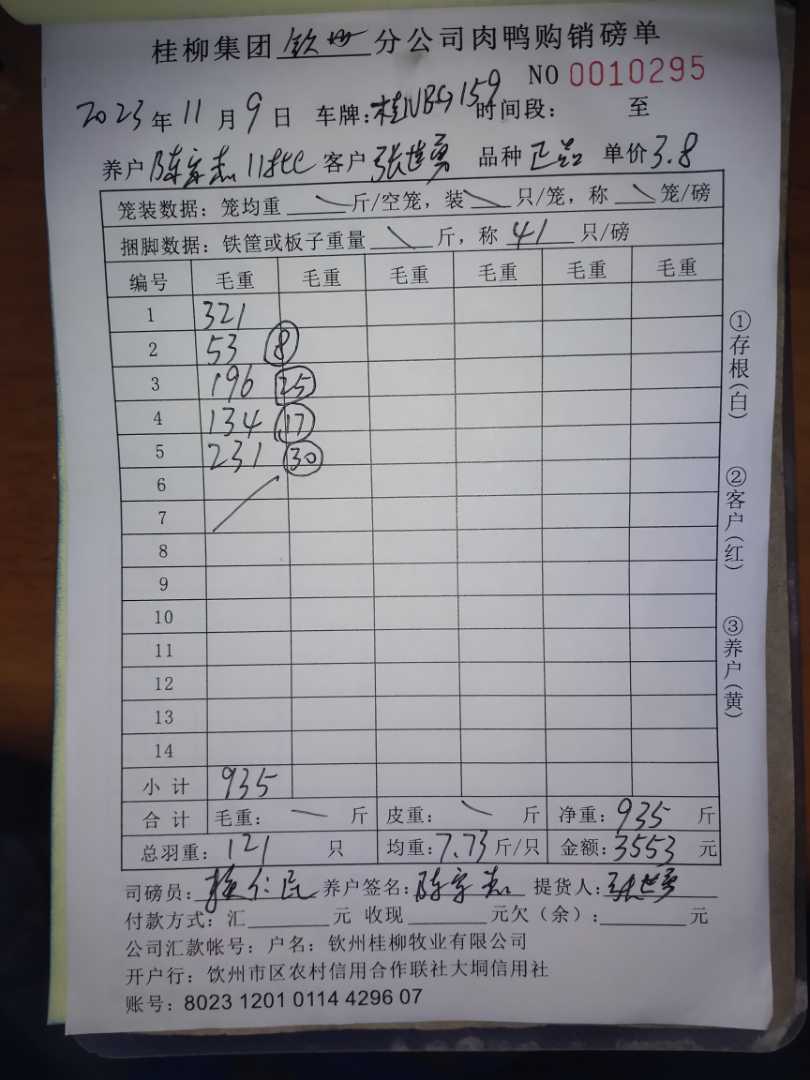 桂柳集团 钦州 分公司肉鸭购销磅单
NO 0010295
2023年11月9日 车牌:桂NBG159 时间段: 至
养户 陈家志 客户 张世勇 品种 正品 单价 3.8
笼装数据: 笼均重 \ 斤/空笼, 装 \ 只/笼, 称 \ 笼/磅
捆脚数据: 铁筐或板子重量 \ 斤, 称 41 只/磅
编号 毛重 毛重 毛重 毛重 毛重 毛重
1 321
2 53 8
3 196 25
4 134 17
5 231 30
6
7
8
9
10
11
12
13
14
小计 935
合计 毛重: 斤 皮重: 斤 净重: 935 斤
总羽重: 121 只 均重: 7.73 斤/只 金额: 3553 元
司磅员: 养户签名: 陈家志 提货人: 张世勇
付款方式: 汇 元 收现 元欠(余): 元
公司汇款帐号: 户名: 钦州桂柳牧业有限公司
开户行: 饮州市区农村信用合作联社大垌信用社
账号: 8023 1201 0114 4296 07
①存根(白)
②客户(红)
③养户(黄)